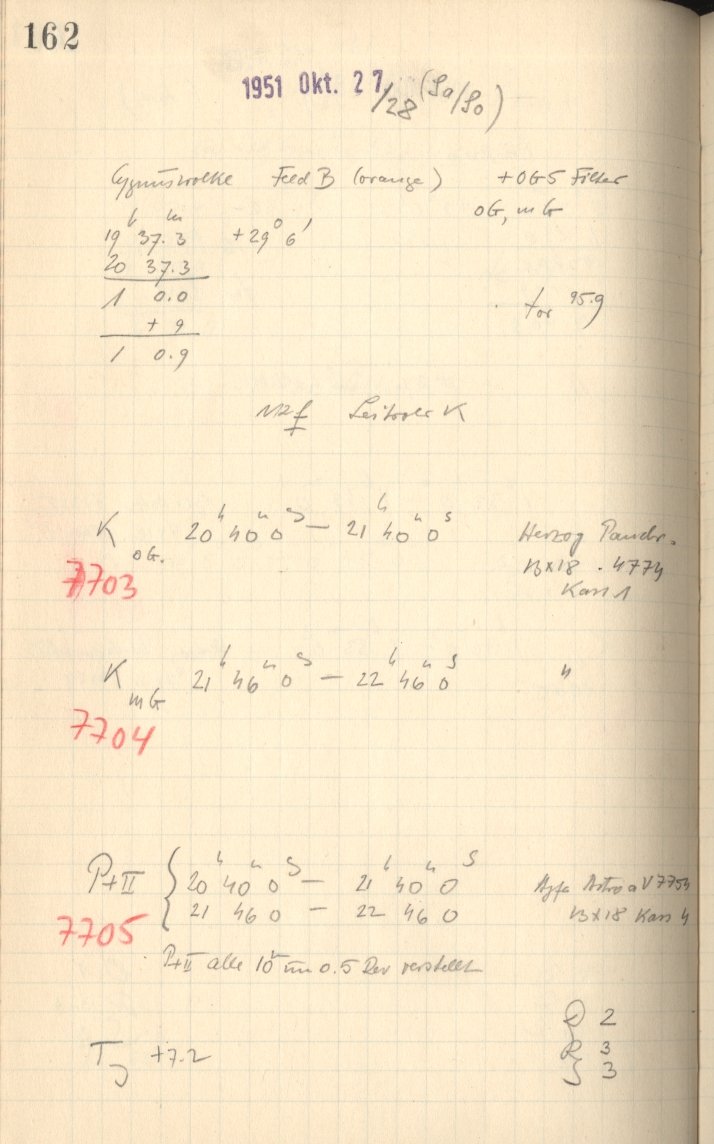 162
1951 Okt. 27/28 (Sa/So)
Cygnuswolke Feld B (orange) + OG5 Filter
OG, mG
19 h 37.3 m +29° 6'
20 37.3
1 0.0
+ 9
1 0.9
tor 95.9
K OG. 20 h 40 m 0 s — 21 h 40 m 0 s Herzog Panchr.
7703 13x18 . 4774
Kass 1
K mG 21 h 46 m 0 s — 22 h 46 m 0 s "
7704
P+II { 20 h 40 m 0 s — 21 h 40 m 0 s Agfa Astro a V7754
21 46 0 — 22 46 0 13x18 Kass 4
7705
P+II alle 10 m um 0.5 Rev verstellt
T J +7.2
D 2
R 3
S 3